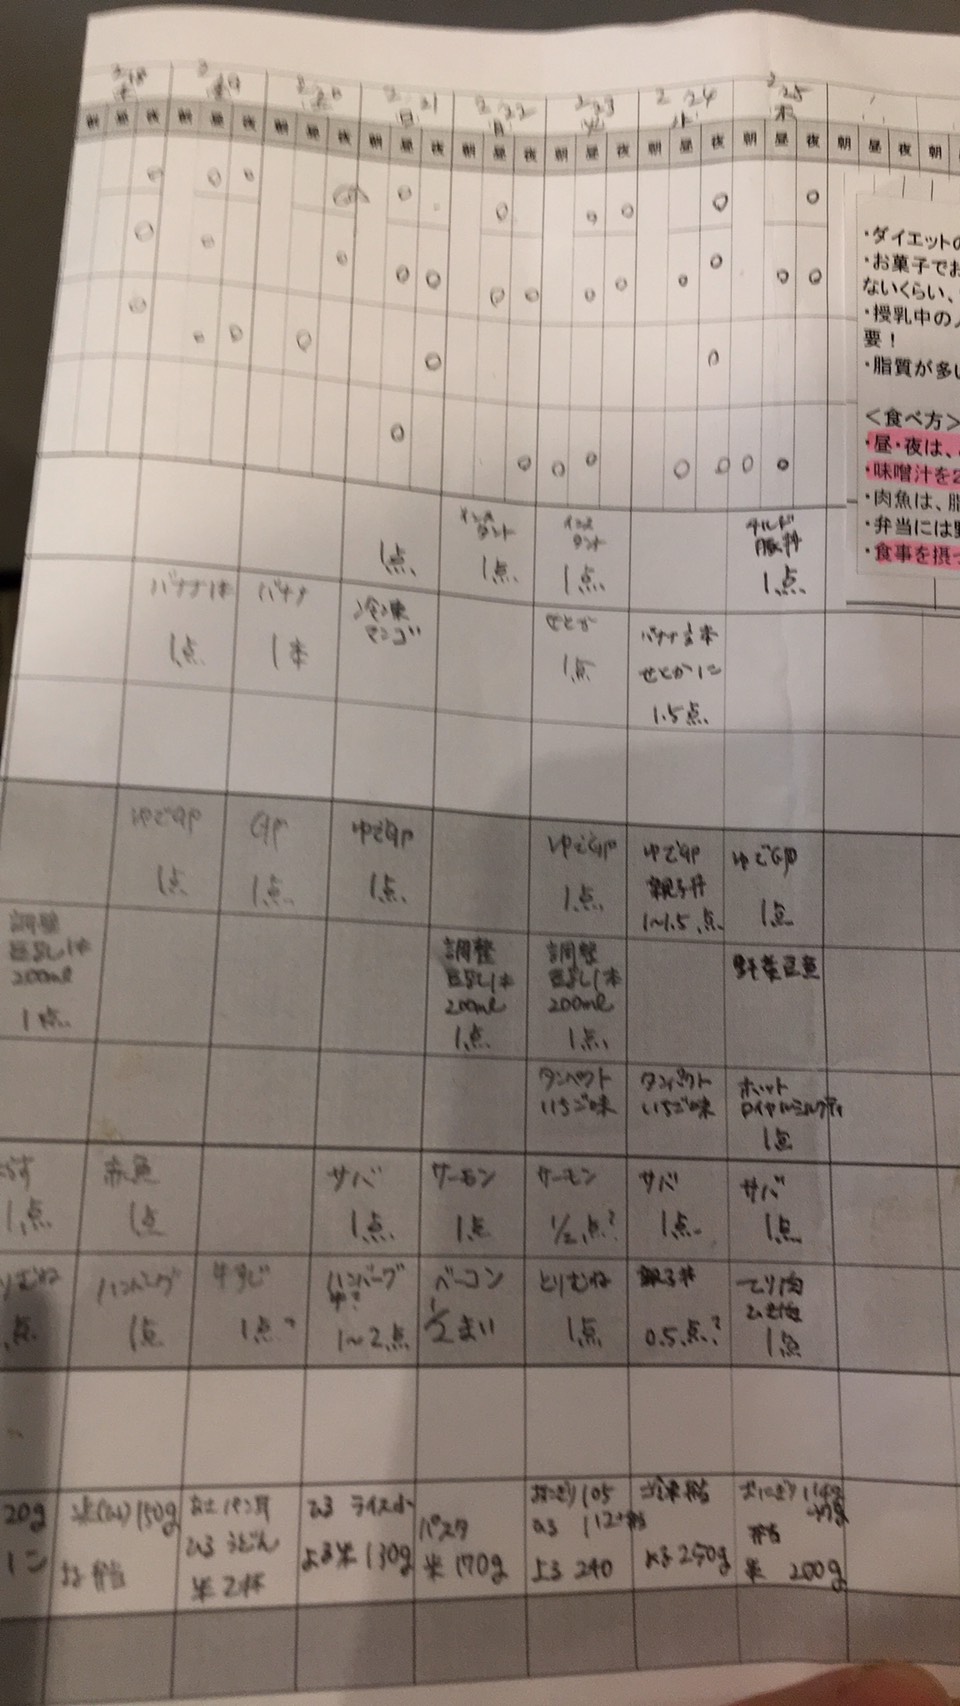 2 18 木
2 19 金
2 20 土
2 21 日
2 22 月
2 23 火
2 24 水
2 25 木
朝 昼 夜 朝 昼 夜 朝 昼 夜 朝 昼 夜 朝 昼 夜 朝 昼 夜 朝 昼 夜 朝 昼 夜 朝 昼 夜 朝
・ダイエットの
・お菓子でお
ないくらい、
・授乳中の人
要！
・脂質が多い
＜食べ方＞
・昼・夜は、
・味噌汁を2
・肉魚は、脂
・弁当には野
・食事を摂っ
1点
インスタント
1点
インスタント
1点
チルド
豚丼
1点
バナナ1本
1点
バナナ
1本
冷凍
マンゴ
せとか
1点
バナナ1/2本
せとか1コ
1.5点
ゆで卵
1点
卵
1点
ゆで卵
1点
ゆで卵
1点
ゆで卵
親子丼
1〜1.5点
ゆで卵
1点
調整
豆乳1本
200ml
1点
調整
豆乳1本
200ml
1点
調整
豆乳1本
200ml
1点
野菜豆魚
タンパクト
いちご味
タンパクト
いちご味
ホット
ロイヤルミルクティ
1点
1点
赤魚
1点
サバ
1点
サーモン
1点
サーモン
1/2点?
サバ
1点
サバ
1点
りむね
点
ハンバーグ
1点
1点?
ハンバーグ
1〜2点
ベーコン
1/2まい
とりむね
1点
親子丼
0.5点?
1点
20g
150g
弁当
パン耳
ひる うどん
米2杯
ひる ライス小
よる米130g
パスタ
米170g
おにぎり105
ひる 112
よる 240
弁当
よる250g
おにぎり114g
弁当
米 200g